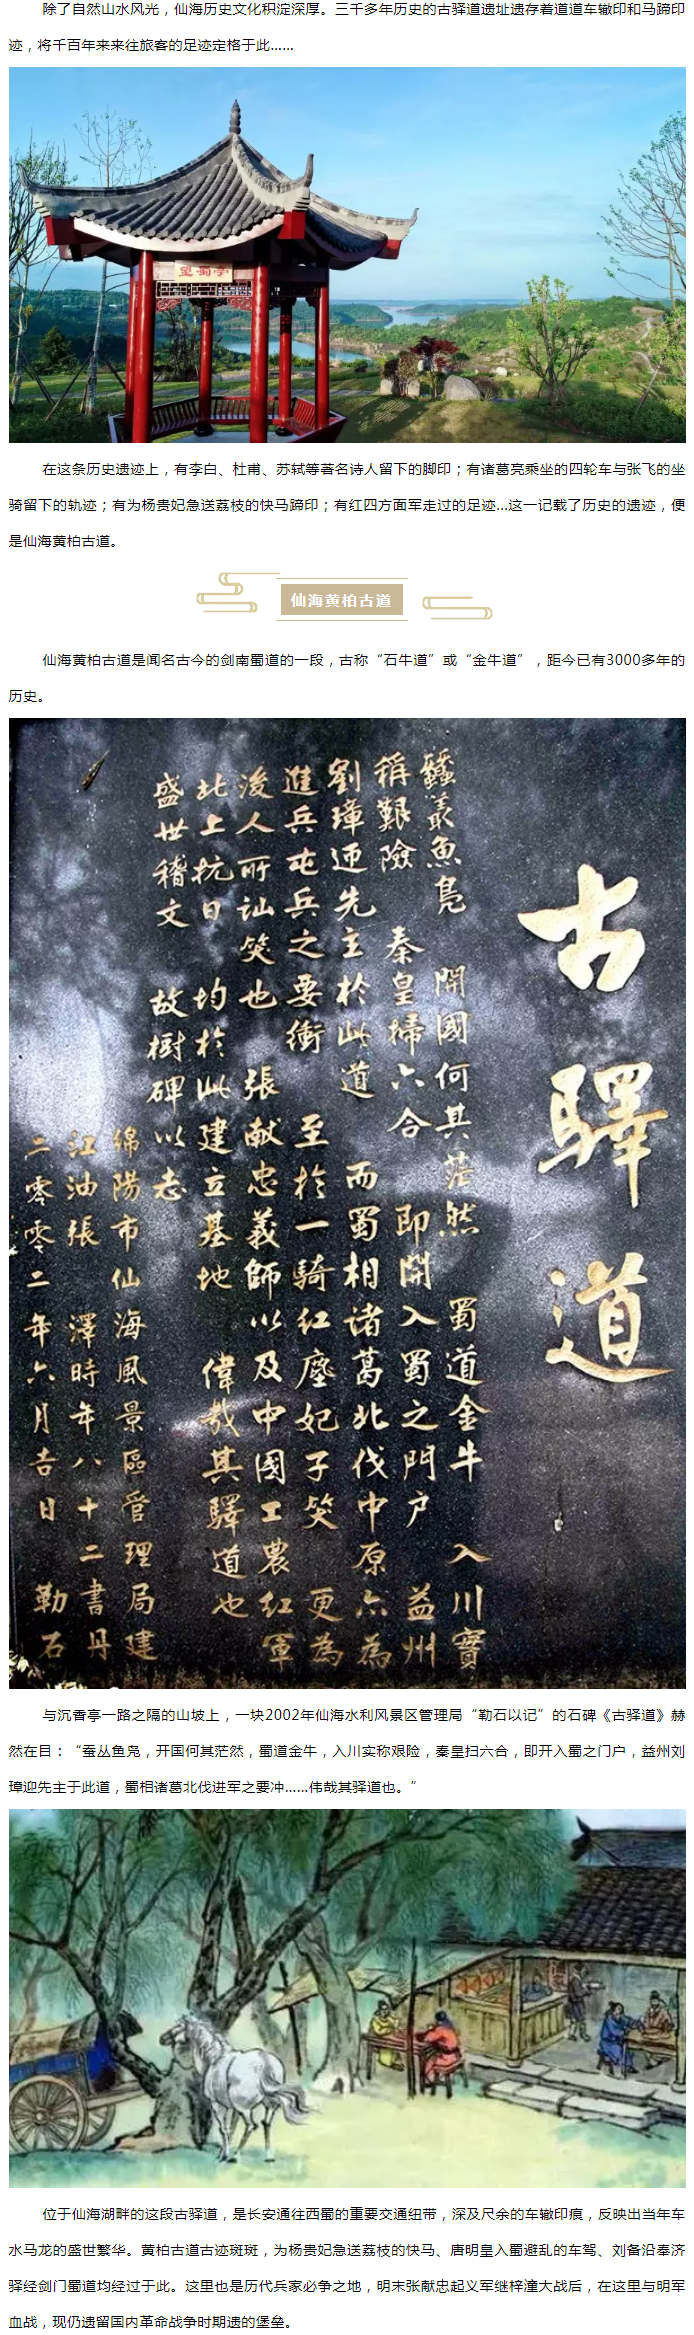 除了自然山水风光，仙海历史文化积淀深厚。三千多年历史的古驿道遗址遗存着道道车辙印和马蹄印
迹，将千百年来来往旅客的足迹定格于此……
望蜀亭
在这条历史遗迹上，有李白、杜甫、苏轼等著名诗人留下的脚印；有诸葛亮乘坐的四轮车与张飞的坐
骑留下的轨迹；有为杨贵妃急送荔枝的快马蹄印；有红四方面军走过的足迹…这一记载了历史的遗迹，便
是仙海黄柏古道。
仙海黄柏古道
仙海黄柏古道是闻名古今的剑南蜀道的一段，古称“石牛道”或“金牛道”，距今已有3000多年的
历史。
古驛道
蠶叢魚鳧 開國何其茫然 蜀道金牛 入川實
稱艱險 秦皇掃六合 即開入蜀之門户 益州
劉璋迊先主於此道 而蜀相诸葛北伐中原六為
進兵屯兵之要衝 至於一騎红塵妃子笑 更為
後人所訕笑也 張献忠義師以及中國工農红軍
北上抗日 均於此建立基地 偉哉其驛道也
盛世稽文 故樹碑以志
绵陽市仙海風景區管理局建
江油張 澤時年八十二書丹
二零零二年六月吉日 勒石
与沉香亭一路之隔的山坡上，一块2002年仙海水利风景区管理局“勒石以记”的石碑《古驿道》赫
然在目：“蚕丛鱼凫，开国何其茫然，蜀道金牛，入川实称艰险，秦皇扫六合，即开入蜀之门户，益州刘
璋迎先主于此道，蜀相诸葛北伐进军之要冲……伟哉其驿道也。”
位于仙海湖畔的这段古驿道，是长安通往西蜀的重要交通纽带，深及尺余的车辙印痕，反映出当年车
水马龙的盛世繁华。黄柏古道古迹斑斑，为杨贵妃急送荔枝的快马、唐明皇入蜀避乱的车驾、刘备沿奉济
驿经剑门蜀道均经过于此。这里也是历代兵家必争之地，明末张献忠起义军继梓潼大战后，在这里与明军
血战，现仍遗留国内革命战争时期遗的堡垒。